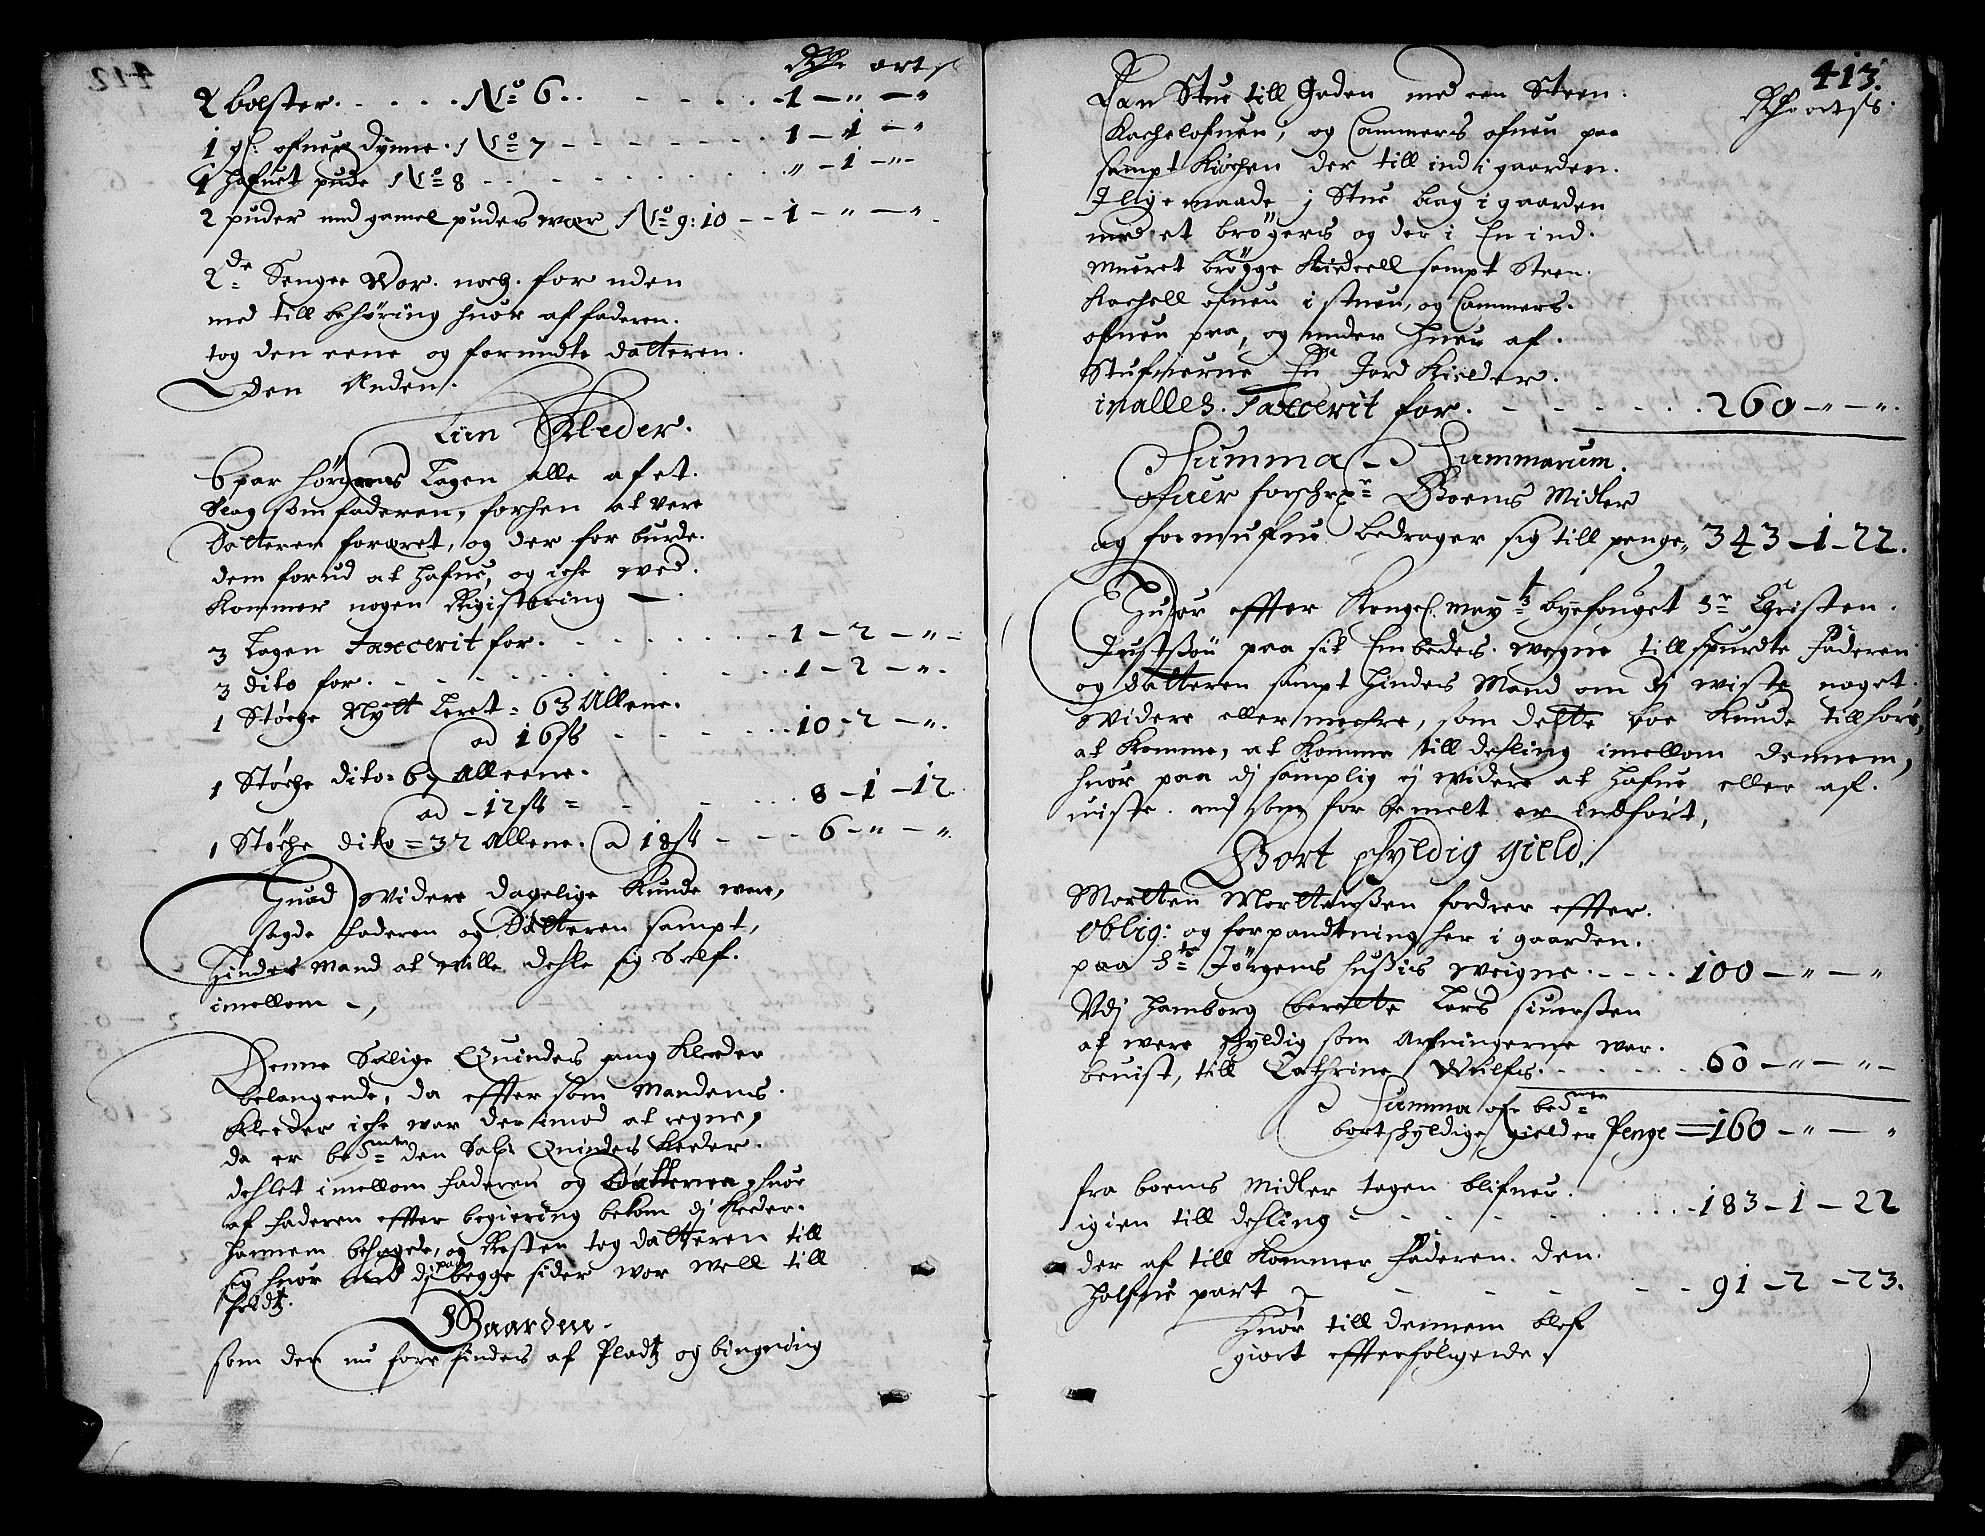 412
Rdlr ort s
2 bolster. . . . . No 6. . . . . . . 1 — " — "
1 gl: ofuer dynne. No 7 - - - - - - - 1 — 1 — "
1 hafuet pude No 8 - - - - - - - - " — 1 — "
2 puder med gamel puders waar No 9: 10 - - 1 — " — "
2de Senger War. noch. for uden
med till behøring huor af faderen.
tog den eene og forundte datteren.
den Anden.
Liin Kleder.
6 par hørgarns Lagen alle af et.
Slag som faderen, forhen at vere
Datteren foræret, og der for burde.
dem forud at hafue, og iche wed.
Kommer nogen Registering —
3 Lagen Taxcerit for. - - - - - - 1 — 2 — "
3 dito for. - - - - - - - - 1 — 2 — "
1 Støche Nytt Leret = 63 Allene.
ad 16 s - - - - - - 10 — 2 — "
1 Støche dito = 67 Alleene.
ad - 12 s = - - - . . . 8 — 1 — 12
1 Støche dito = 32 Allene. ad 18 s - - - - 6 — " — "
Huad widere dagelige kunde were,
sagde faderen og Datteren sampt,
Hindes Mand at wille dehle sig Self.
imellom —,
Denne Salige Quindes gang kleder
belangende, da effter som Mandens.
Kleeder iche war der imod at regne,
da er bete den Sal: Quindes kleder.
dehlet imellom faderen og Datteren, huor
af faderen effter begiering bekom dj kleder.
hannem behagede, og Resten tog datteren till
sig huor med dj paa begge sider wor well till
fredtz.
Gaarden.
som den nu forre findes af Pladtz og bøngning
413.
Rdr ort s.
Een Stue till Gaden med een Steen.
Kachelofuen, og Cammers ofuen paa
sampt Kiøchen der till ind i gaarden.
Jlige maade j Stue bag i gaarden
med et brøgers og der i En ind.
muret brøgge Kiedell sampt Steen.
Kachell ofuen i stuen, og Cammers.
ofuen paa, og under huer af.
Stufuerne En Jord Kielder.
inalles. Taxcerit for. - - - - - - . 260 — " — "
Summa - Summarum.
ofuer forschrne Boens Midler
og formufue bedrager sig till penge 343 — 1 — 22.
Huor effter Kongel. may tz byefouget Sr Christen.
Justsøn paa sit Embedes. wegne till spurdte faderen
og datteren sampt hindes Mand om dj wiste noget.
widere eller meehre, som dette boe kunde tillhøre,
at komme, at komme till dehling imellom dennem,
huor paa dj samplig ej widere at hafue eller af.
uiste. end som for bemelt er indført,
Bort schyldig gield.
Mortten Morttenssen fordrer effter.
oblig: og forpandtning her i gaarden.
paa Sr Jørgens hussis weigne. - - - - 100 — " — "
Udj hamborg beratte Lars siuerssen
at were schyldig som Arfuingerne war.
beuist, till Cathrine Wulfs. - - - - - - 60 — " — " —
Summa ofr bete
bortschyldige gielder Penge = 160 — " — "
fra boens Midler tagen blifuer.
igien till dehling - - - - - - - 183 — 1 — 22
der af till kommer faderen. den.
halfue part - - - - - - - 91 — 2 — 23.
Huor till dennem blef
giort effterfølgende